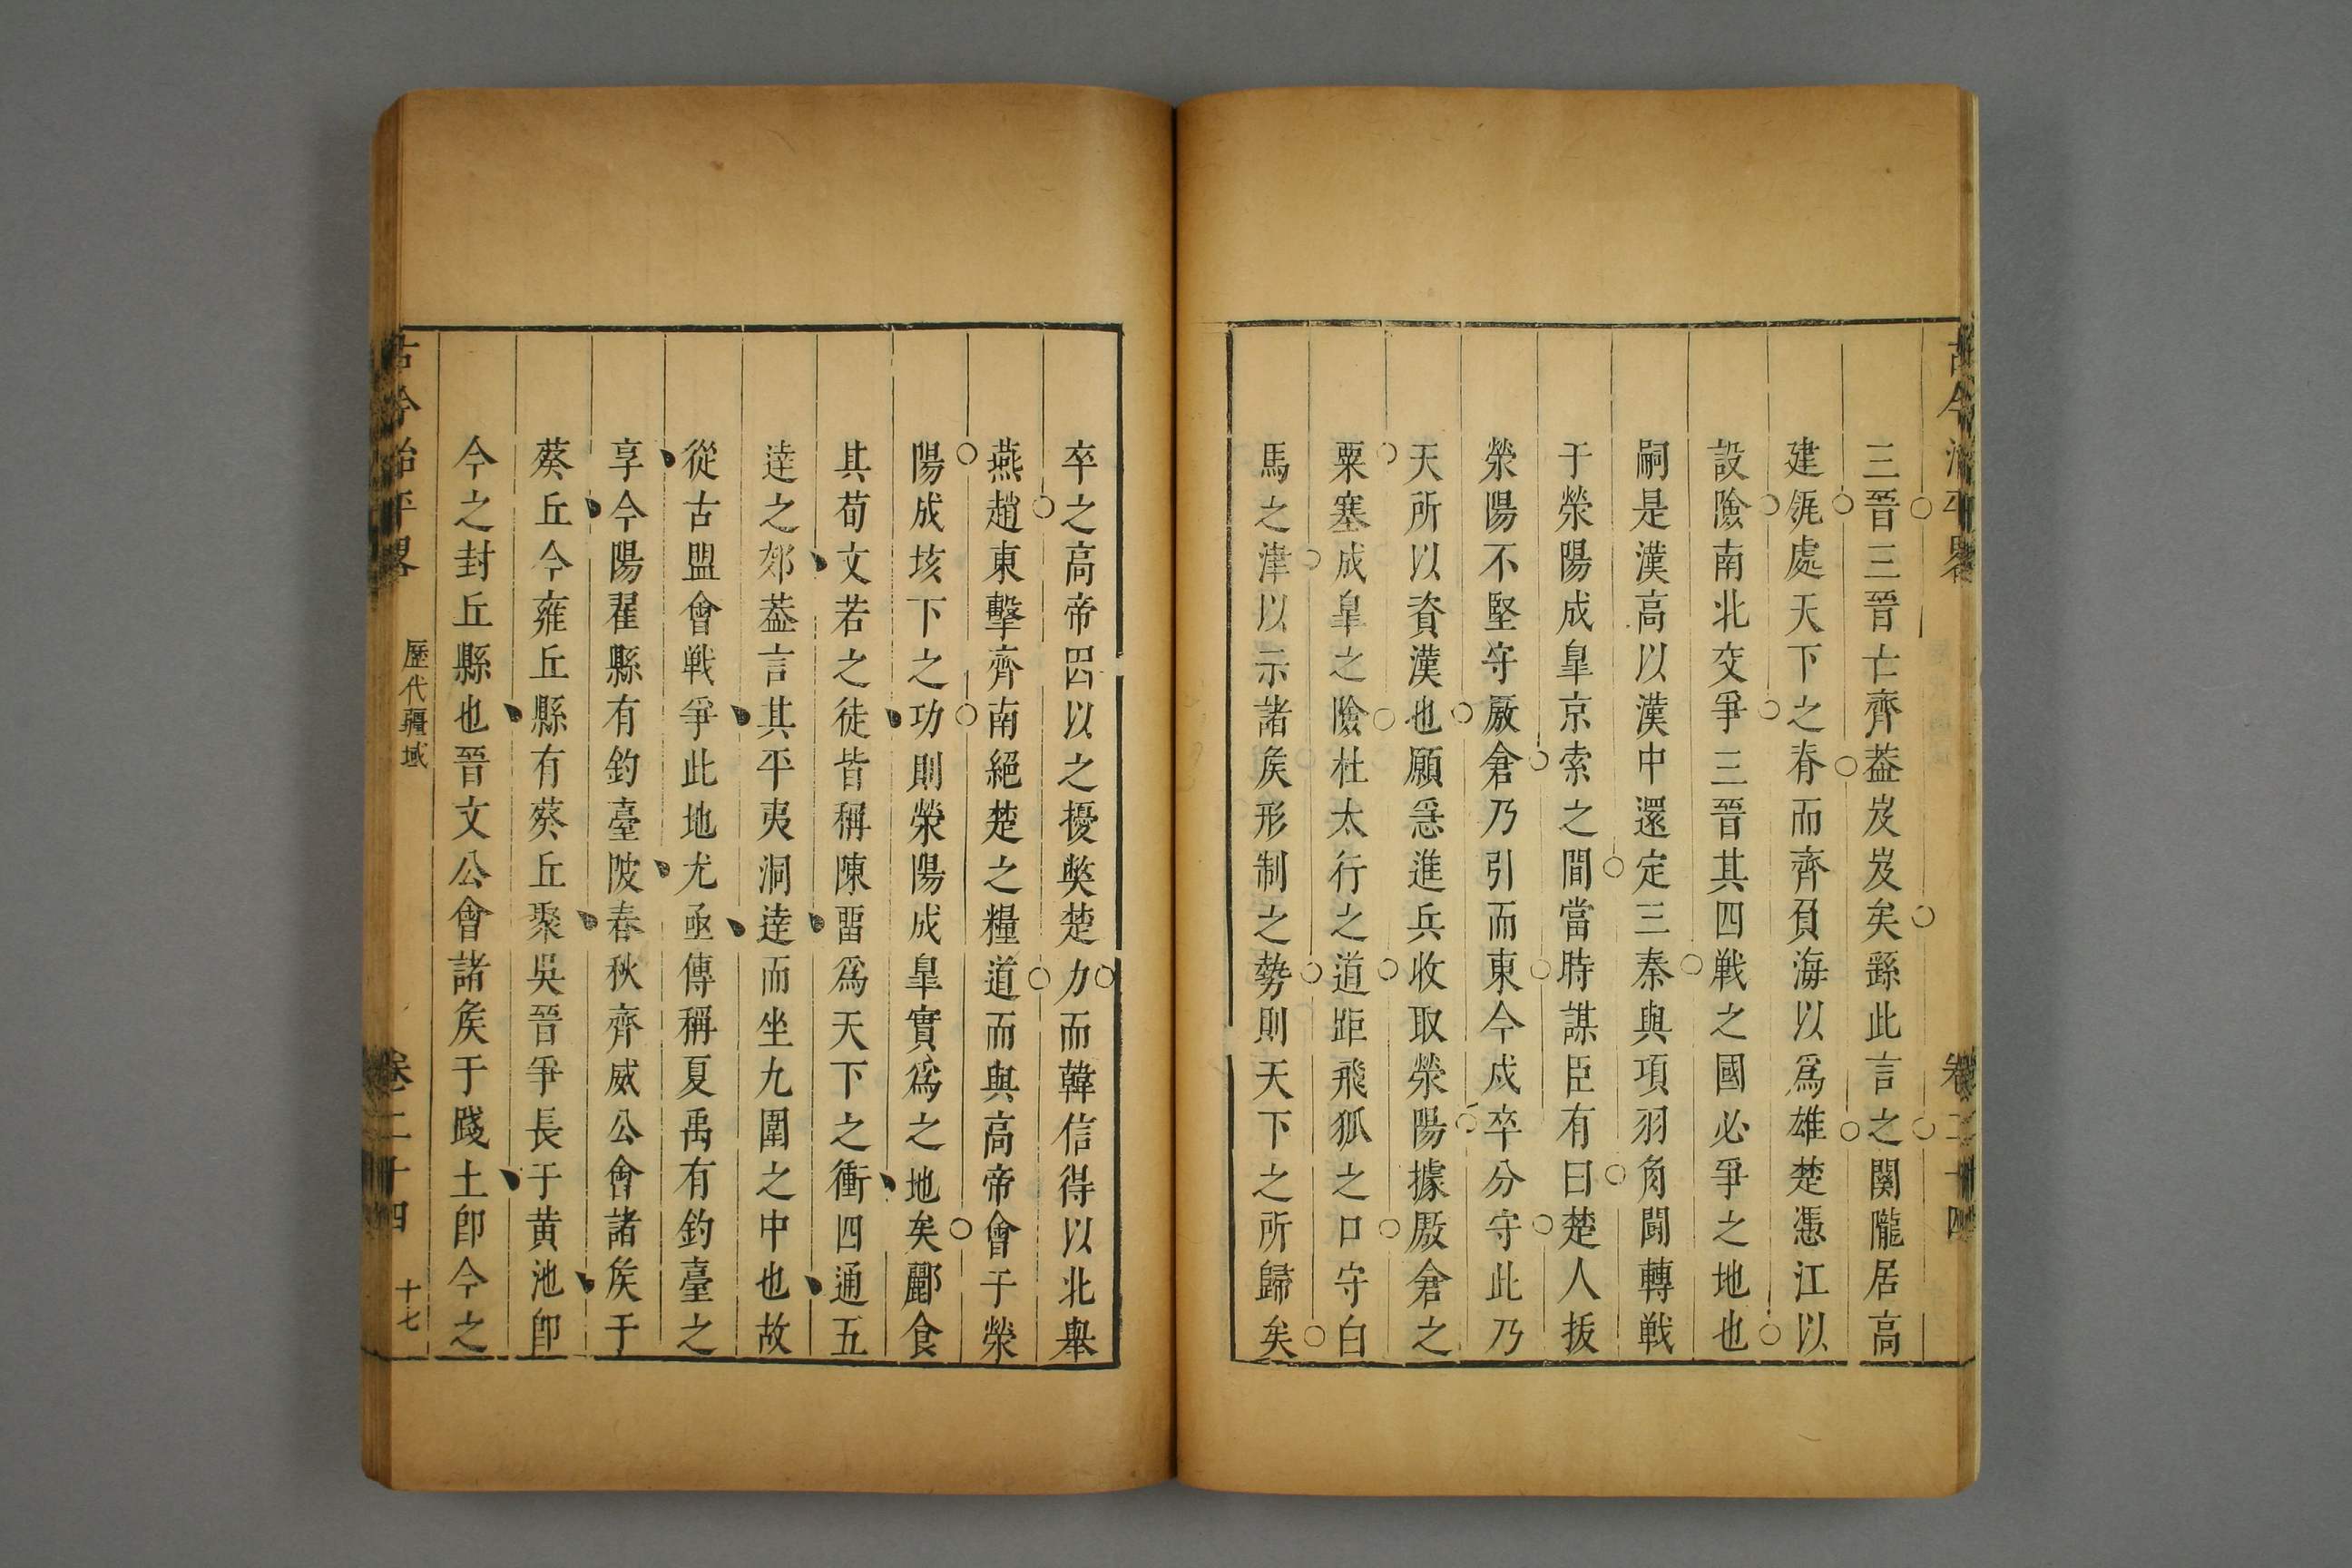 古今治平畧
卷二十四
三晉三晉亡齊葢岌岌矣繇此言之關隴居高
建瓴處天下之脊而齊負海以爲雄楚憑江以
設險南北交爭三晉其四戰之國必爭之地也
嗣是漢高以漢中還定三秦與項羽角鬪轉戰
于滎陽成皐京索之間當時謀臣有曰楚人拔
滎陽不堅守厫倉乃引而東令戍卒分守此乃
天所以資漢也願急進兵收取滎陽據厫倉之
粟塞成皐之險杜太行之道距飛狐之口守白
馬之津以示諸矦形制之勢則天下之所歸矣
卒之高帝因以之擾獘楚力而韓信得以北舉
燕趙東擊齊南絕楚之糧道而與高帝會于滎
陽成垓下之功則滎陽成皐實爲之地矣酈食
其荀文若之徒皆稱陳畱爲天下之衝四通五
達之郊葢言其平夷洞達而坐九圍之中也故
從古盟會戰爭此地尤亟傳稱夏禹有釣臺之
享今陽翟縣有釣臺陂春秋齊威公會諸矦于
葵丘今雍丘縣有葵丘聚吳晉爭長于黄池卽
今之封丘縣也晉文公會諸矦于踐土卽今之
古今治平畧
歷代疆域
卷二十四
十七